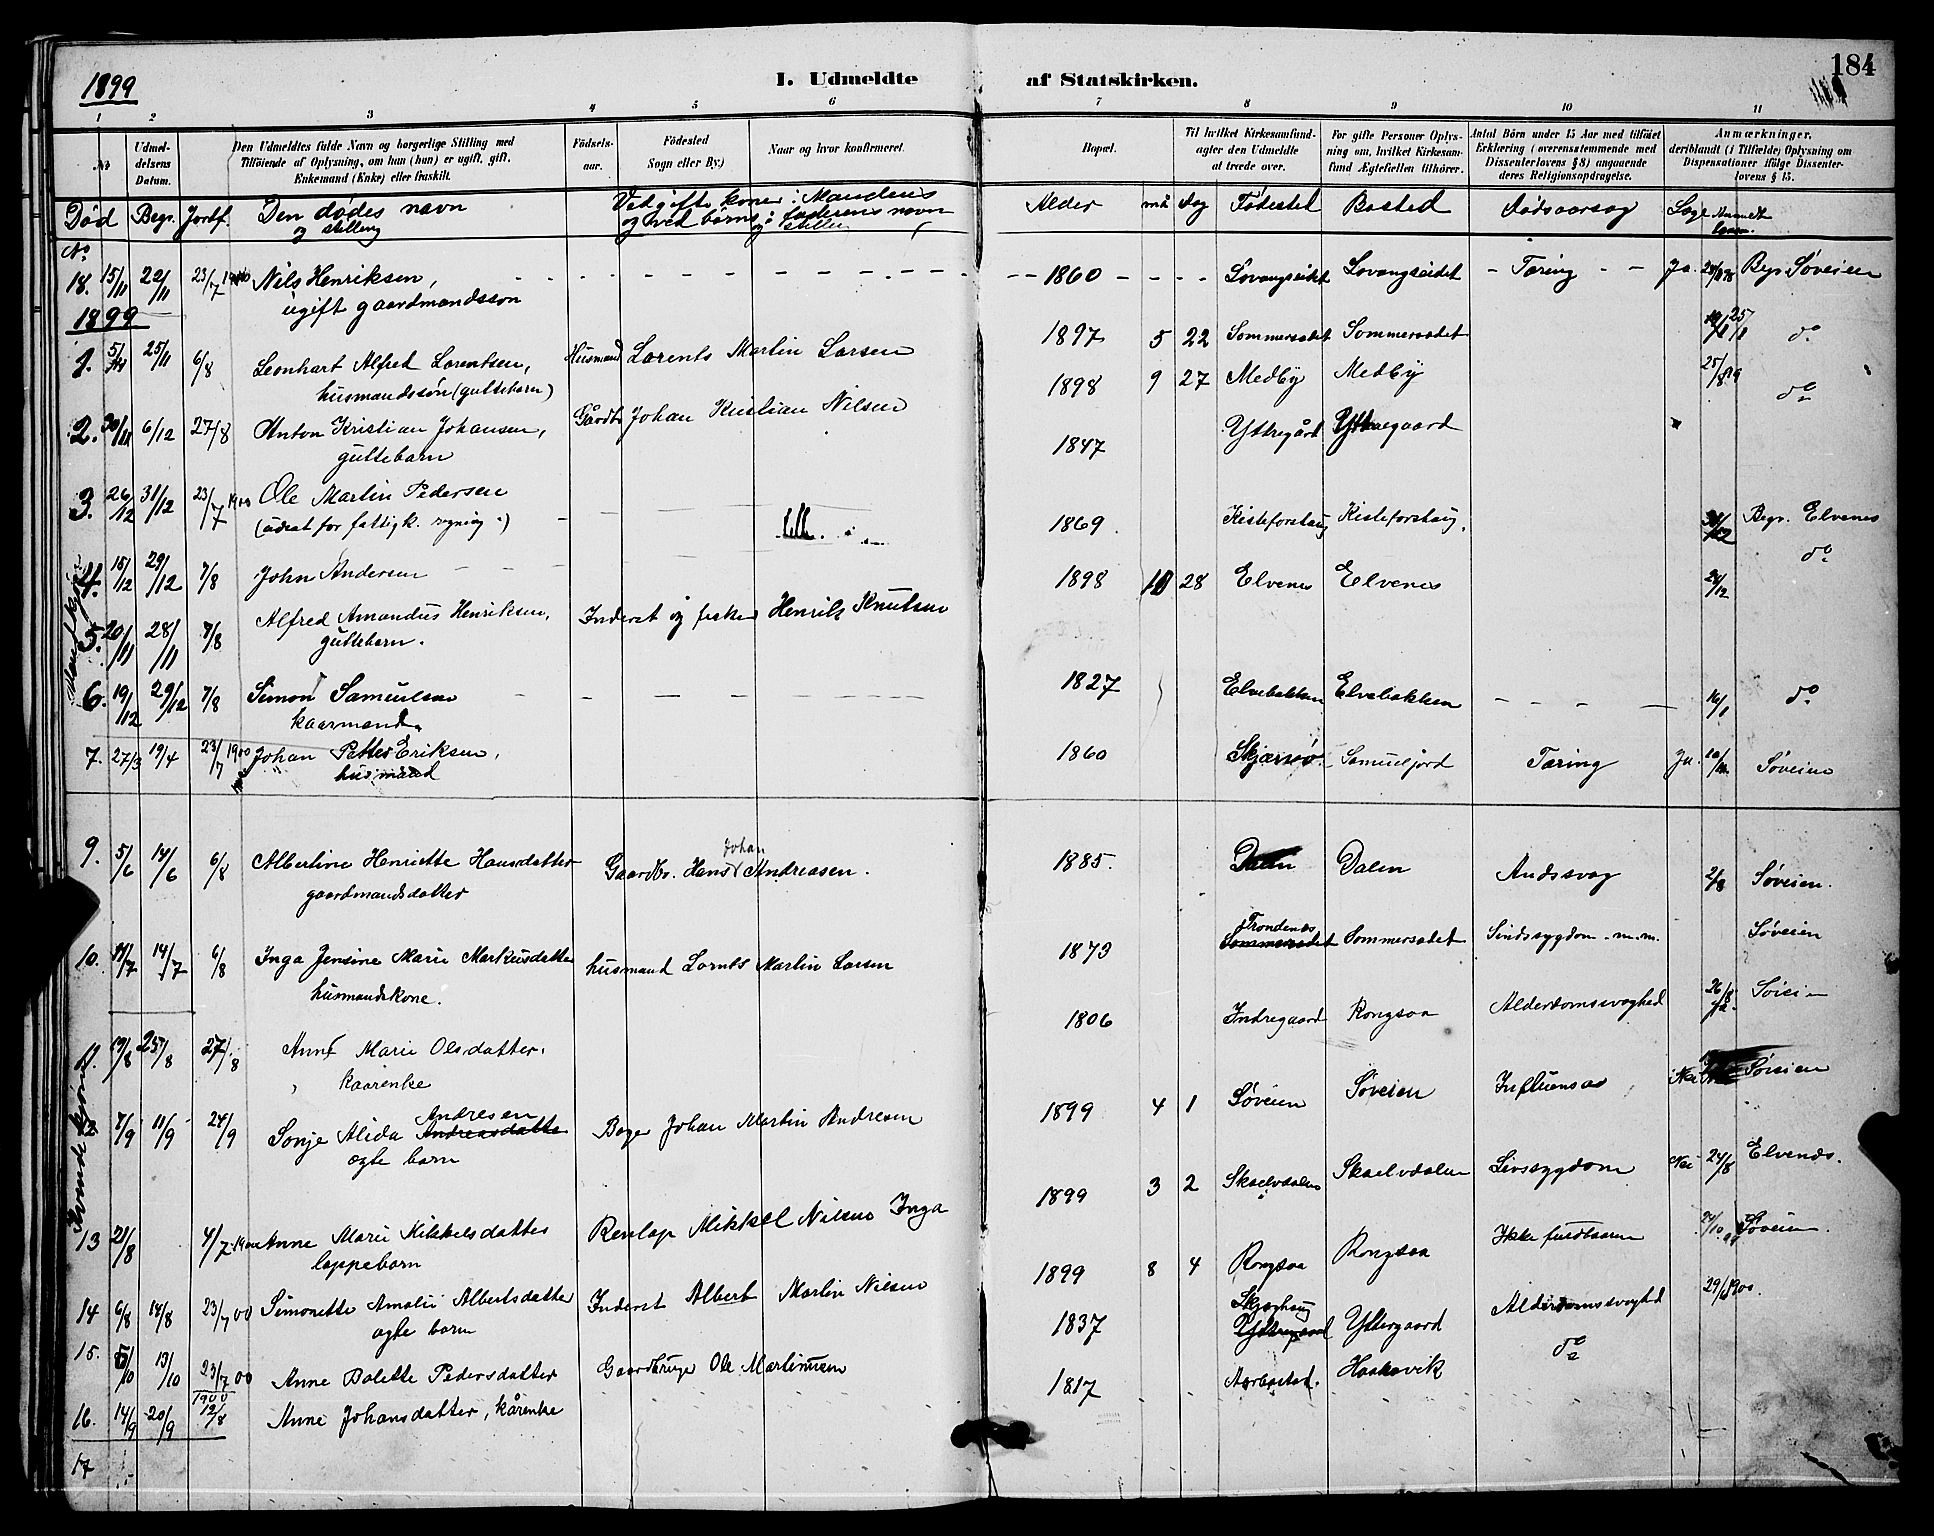 1899
I. Udmeldte af Statskirken.
184
1 2 3 4 5 6 7 8 9 10 11
No
Udmeldelsens Datum.
Den Udmeldtes fulde Navn og borgerlige Stilling med Tilföiende af Oplysning, om han (hun) er ugift, gift, Enkemand (Enke) eller fraskilt.
Födselsaar.
Födested Sogn eller By.)
Naar og hvor konfirmeret.
Bopæl.
Til hvilket Kirkesamfund agter den Udmeldte at træde over.
For gifte Personer Oplysning om, hvilket Kirkesamfund Ægtefællen tilhörer.
Antal Börn under 15 Aar med tilföiet Erklæring (overensstemmende med Dissenterlovens § 8) angaaende deres Religionsopdragelse.
Anmærkninger, deriblandt (i Tilfælde) Oplysning om Dispensationer ifölge Dissenterlovens § 15.
Død Begr. Jordf. Den dødes navn og stilling
Ved gifte koner: Mandens og ved børns: faderens navn og stilling
Alder må dag Fødested Bosted Dødsaarsag Læge
No
18. 15/11 22/11 23/7 1900 Nils Henriksen, 1860 Lovangseidet Lovangseidet Tæring Ja. Begr. Søveien
ugift gaardmandssøn
1899
1. 25/11 6/8 Leonhart Alfred Lorentsen, Husmand Lorents Martin Larsen 1897 5 22 Sommersædet Sommersædet do
husmandssøn (guttebarn)
2. 30/11 6/12 27/8 Anton Kristian Johansen, Gårdbr. Johan Kristian Nilsen 1898 9 27 Medby Medby do
guttebarn
3. 26/12 31/12 23/7 1900 Ole Martin Pedersen 1847 Yttregård Yttregaard
4. 15/12 29/12 7/8 John Andersen 1869 Kisteforshaug Kisteforshaug. Begr. Elvenes
5. 20/11 28/11 7/8 Alfred Amandus Henriksen, Inderst og fisker Henrik Knutsen 1898 10 28 Elvenes Elvenes 24/12 do
guttebarn.
6. 19/12 29/12 7/8 Simon Samuelsen 1827 Elvebakken Elvebakken 16/1 do
kaarmand
7. 27/3 19/4 23/7 1900 Johan Petter Eriksen, 1860 Skjærsøv. Samueljord Tæring Ja. Søveien
husmand
9. 5/6 14/6 6/8 Albertine Henriette Hansdatter Gaardbr. Hans Johan Andreasen. 1885. Dalen Dalen Andssvag 2/8 Søveien.
gaardmandsdatter
10. 11/7 14/7 6/8 Inga Jensine Marie Markusdatter husmand Lornts Martin Larsen 1873 Trondenes Sommersædet Sommersædet Sindssygdom m.m. Søveien
husmandskone.
11. 19/8 25/8 27/8 Anne Marie Olsdatter, 1806 Indregaard Rongsaa Alderdomssvaghed 26/8 Ja. Søveien
kaarenke
12 7/9 11/9 24/9 Sonje Alida Andresen Andreasdatter Bager Johan Martin Andresen 1899 4 1 Søveien Søveien Influensa Nei Søveien
ægte barn
Kvindekjøn
13 21/8 4/7 1900 Anne Marie Mikkelsdatter Renlap Mikkel Nilsen Inga 1899 3 2 Skoelvdalen Skoelvdalen Livssygdom Nei 24/8 Elvenes.
lappebarn
14 6/8 14/8 23/7 00 Simonette Amalie Albertsdatter Inderst Albert Martin Nilsen 1899 8 4 Rongsaa Rongsaa Ikke fuldbaaren Søveien.
ægte barn
15. 13/10 23/7 00 Anne Bolette Pedersdatter Gaardbruger Ole Martinusen 1837 Skjæghaug Yttregaard Yttergaard Alderdomssvaghed 1900.
16. 14/9 20/9 1900 12/8 Anne Johansdatter, kårenke 1817 Aarbostad. Haakavik do
17